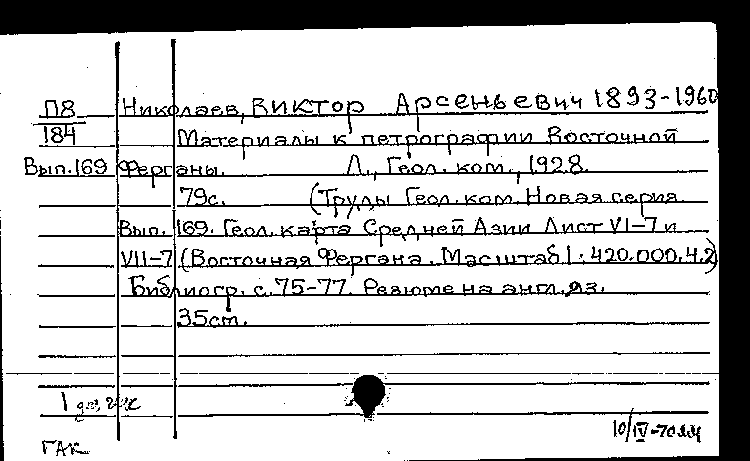 П8 Николаев, Виктор Арсеньевич 1893-1960
184 Материалы к петрографии Восточной
Вып.169 Ферганы. Л., Геол. ком., 1928.
79с. (Труды Геол. ком. Новая серия
Вып. 169. Геол. карта Средней Азии Лист VI-7 и
VII-7 (Восточная Фергана. Масштаб 1:420.000.Ч.2)
Библиогр. с. 75-77. Резюме на англ. яз.
35см.
1
10/IV-70
ГАК